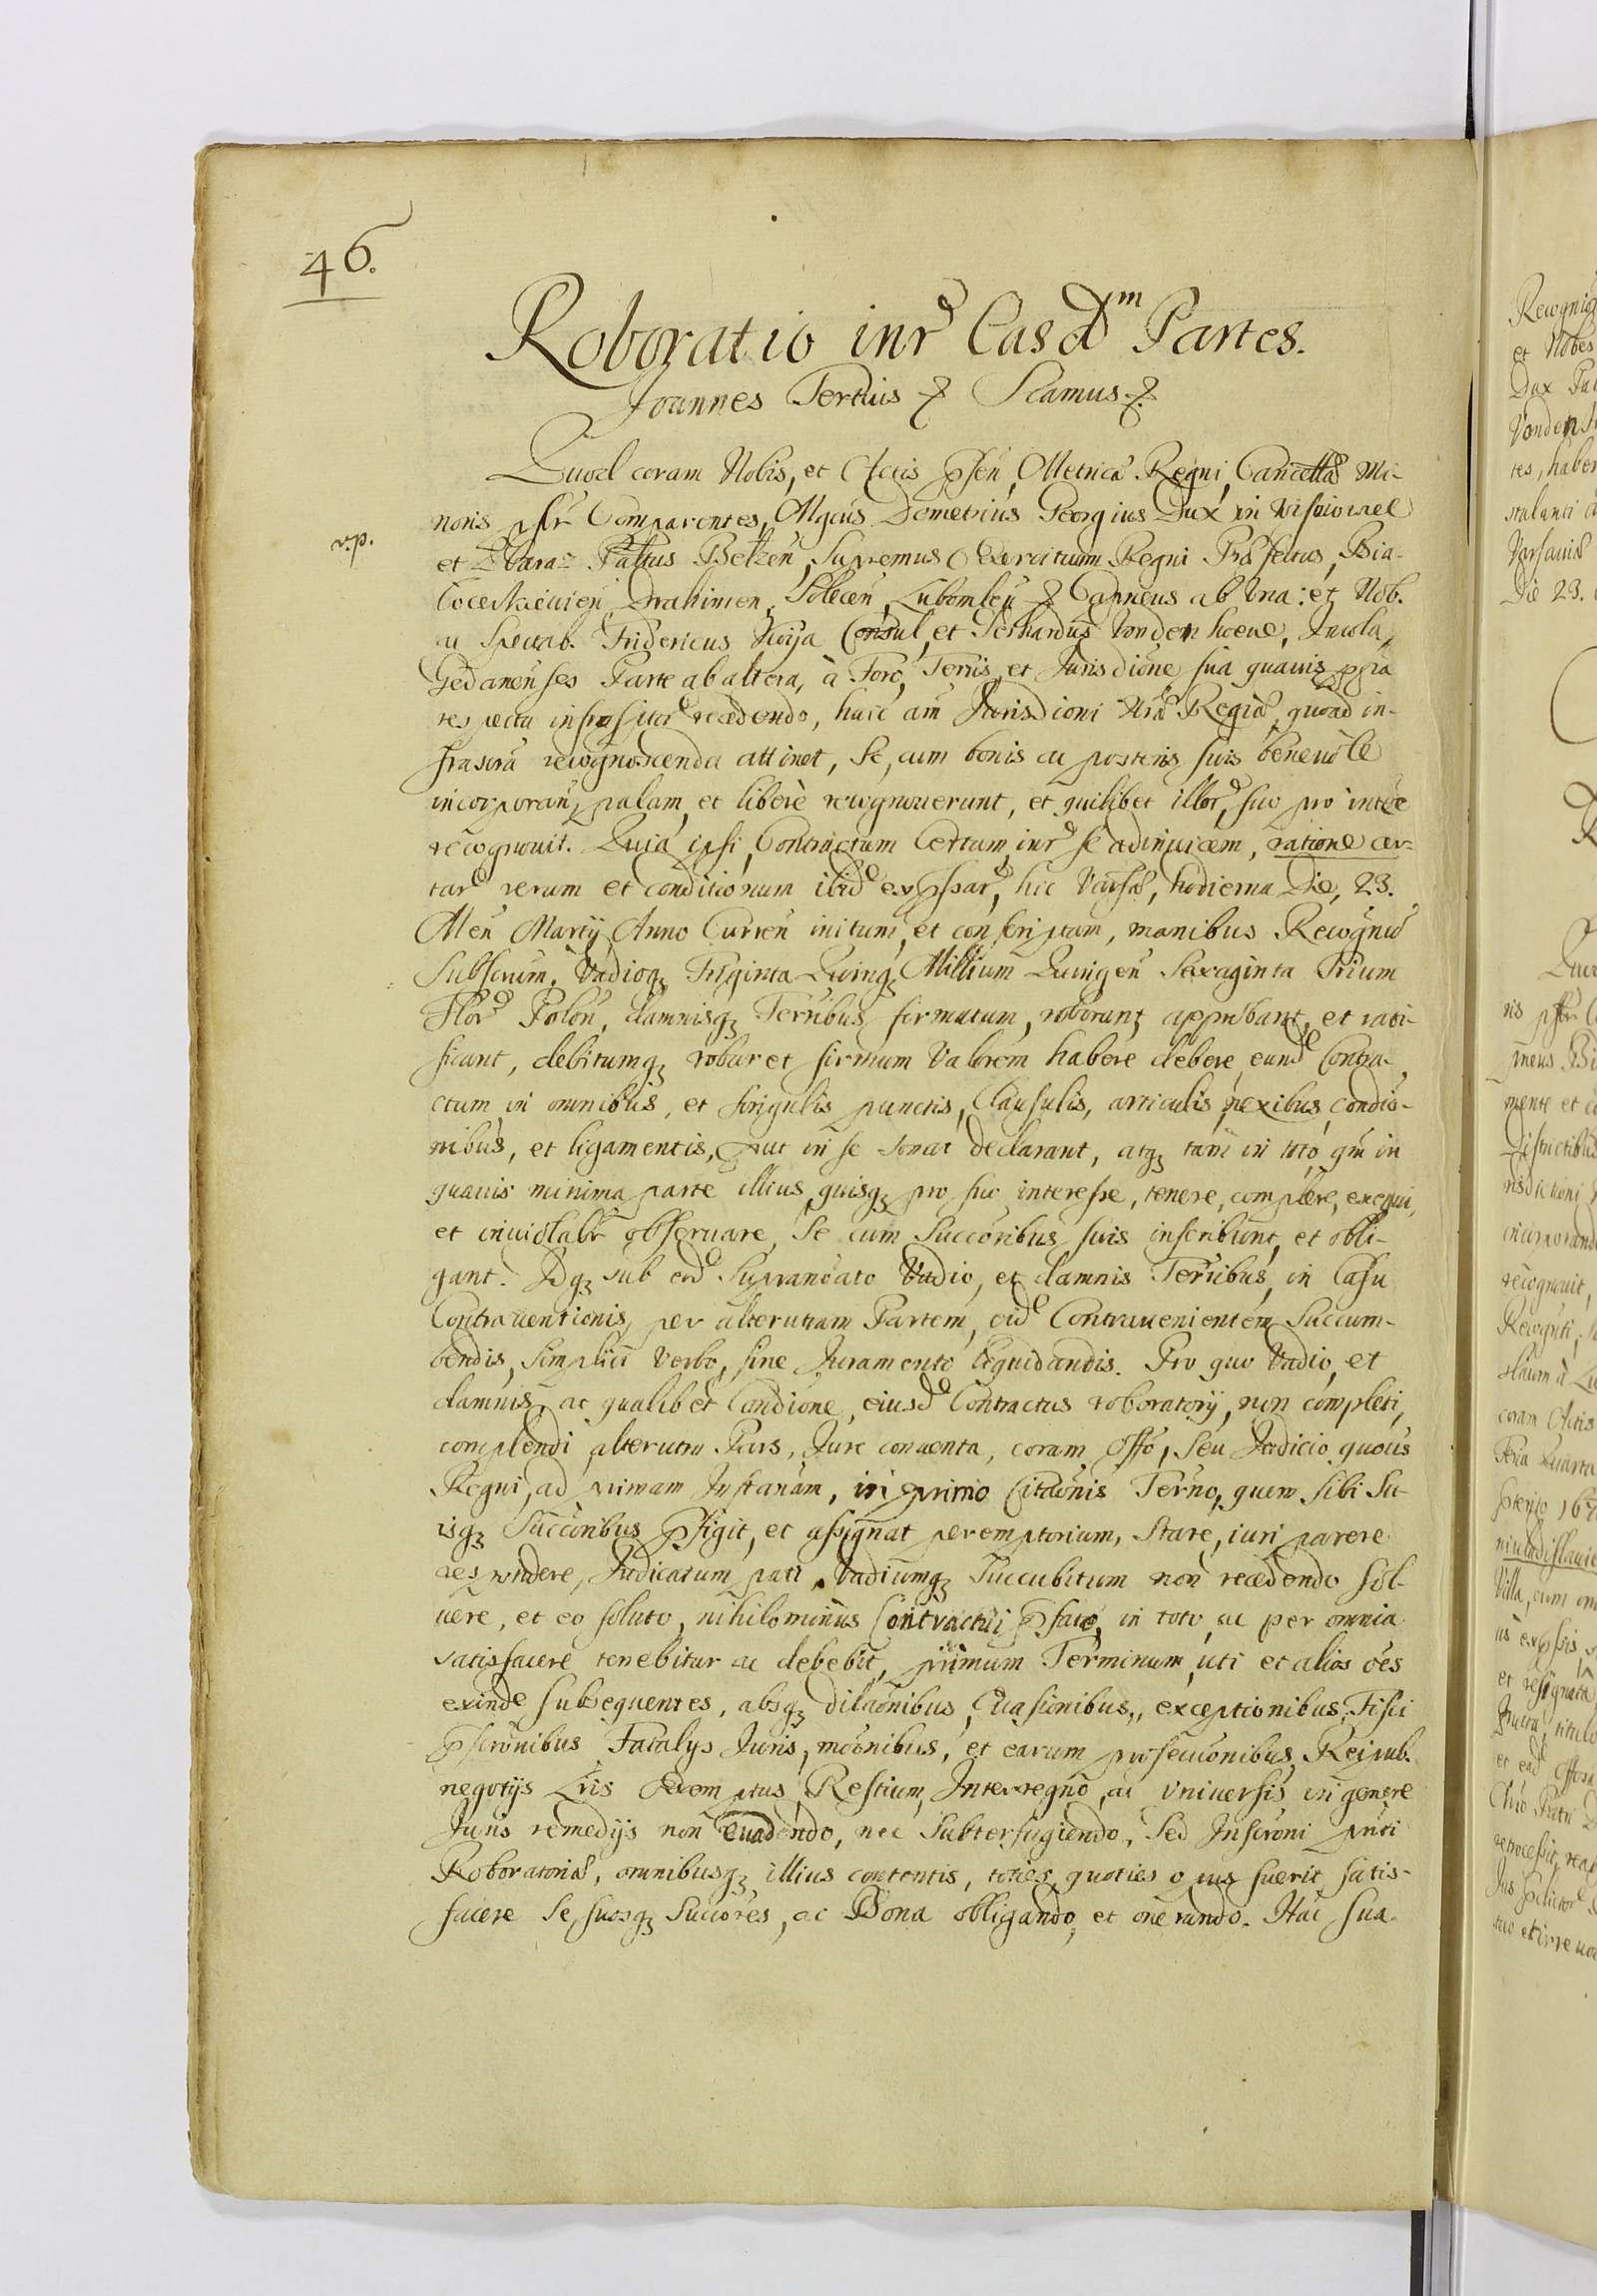 46.
Roboratio inr Easdm Partes.
Joannes Tertius & Scamus &.
Quod coram Nobis, et Actis psen, Metrica Regni, Cancellæ Mi-
v.p.
noris psr Comparentes, Mgcus Demetrius Georgius Dux in Wisniowiel
et Zbaraz Paltus Belzen, Supremus Exercituum Regni Præfectus, Bia-
locerkieuien Drahimen, Solecen, Lubomlen & Capneus ab vna: et Nob.
ac Spectab. Fridericus Consul, et Gerhardus Vonden hoeue, Incola
Gedanenses Parte ab altera, à Foro, Terris, et Jurisdione sua quauis ppia
respectu infrasptor recedendo, huic am Jurisdioni Nræ Regiæ, quoad in-
frascra recognoscenda attinet, Se, cum bonis ac posteris suis beneuole
incorporan, palam et liberè recognouerunt, et quilibet illor, suo pro intee
recognouit. Quia ipsi, Contractum Certum, inr se adinuicem, ratione cer-
tar rerum et conditionum ibid expssar, hic Varsæ, hodierna Die, 23.
Men Martij Anno Curren initum, et conscriptum, manibus Recognm
Subscrum, Vadioq Triginta Quinq Millium Quingen Sexaginta Trium
Flor Polon, damnisq Terribus firmatum, roborant, approbant, et rati-
ficant, debitumq robur et firmum Valorem habere debere, eund Contra-
ctum in omnibus, et singulis punctis, Clausulis, articulis, nexibus, condio-
nibus, et ligamentis, put in se sonat declarant, atq tam in toto, qm in
quauis minima parte illius, quisq pro suo interesse, tenere, complere, exequi,
et inuiolabr obseruare, Se cum Succoribus suis inscribunt, et obli-
gant. Idq sub eod Supranoato Vadio, et damnis Terribus, in Casu
Contrauentionis, per alterutram Partem, eid Contrauenientem Succum-
bendis, Simplici Verbo, sine Juramento liquidandis. Pro quo Vadio, et
damnis, ac qualibet Condione, eiusd Contractus roboratorij, non completi,
complendi alterutra Pars, Jure conuenta, coram Offo, Seu Judicio quouis
Regni, ad primam Instanam, in primo Citaonis Terno, quem sibi Su-
isq Succoribus pfigit, et assignat peremptorium, Stare, iuri parere
respondere, Judicatum pati, Vadiumq Succubitum non recedendo Sol-
uere, et eo soluto, nihilominus Contractui psato, in toto, ac per omnia
satisfacere tenebitur ac debebit, primum Terminum, uti et alios oes
exinde subsequentes, absq dilaonibus, Euasionibus, exceptionibus, Fisci
pscronibus Fatalys Juris, moonibus, et earum prosecuonibus, Reipub.
negotijs Eris Ademptus, Restium, Interregno, ac vniuersis in genere
Juris remedijs non euadendo, nec Subterfugiendo, Sed Inscroni pnti
Roboratoriæ, omnibusq illius contentis, toties, quoties opus fuerit satis-
facere Se, suosq Succores, ac Bona obligando, et onerando. Hac sua